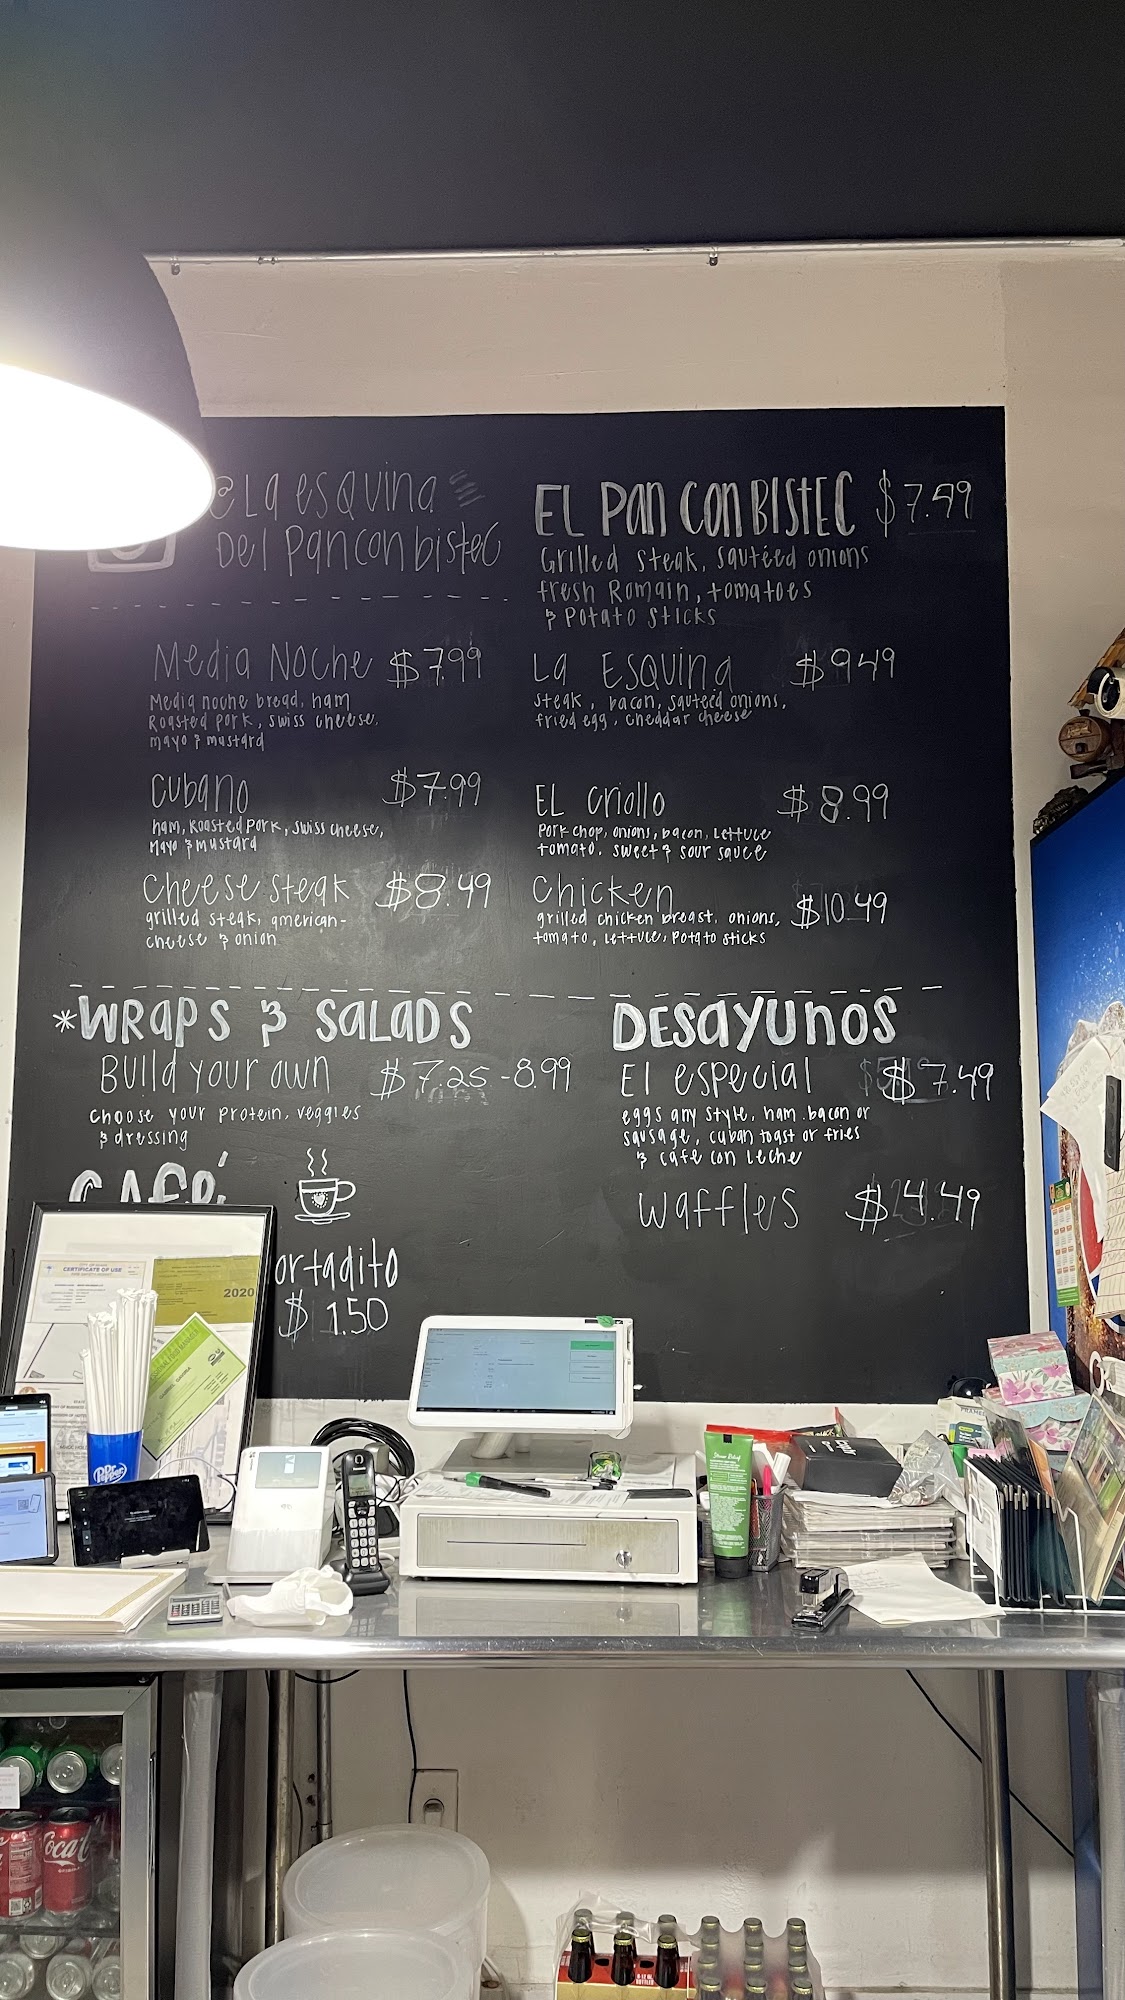 @La esquina
Del panconbistec
EL PAN CON BISTEC $7.99
Grilled steak, sautéed onions
fresh Romain, tomatoes
& Potato sticks
Media Noche $7.99
Media noche bread, ham
Roasted pork, swiss cheese,
mayo & mustard
La Esquina $9.49
steak, bacon, sauteed onions,
fried egg, cheddar cheese
Cubano $7.99
ham, Roasted pork, swiss cheese,
Mayo & mustard
EL Criollo $8.99
Pork chop, onions, bacon, Lettuce
tomato, sweet & sour sauce
Cheese steak $8.49
grilled steak, american-
cheese & onion
Chicken $10.49
grilled chicken breast, onions,
tomato, Lettuce, Potato sticks
*WRAPS & SALADS
Build your own $7.25-8.99
choose your protein, veggies
& dressing
DESAYUNOS
El especial $7.49
eggs any style, ham bacon or
sausage, cuban toast or fries
& cafe con Leche
Waffles $4.49
CAFÉ
ortadito
$1.50
CERTIFICATE OF USE
2020
Dr Pepper
Panasonic
Coca-C